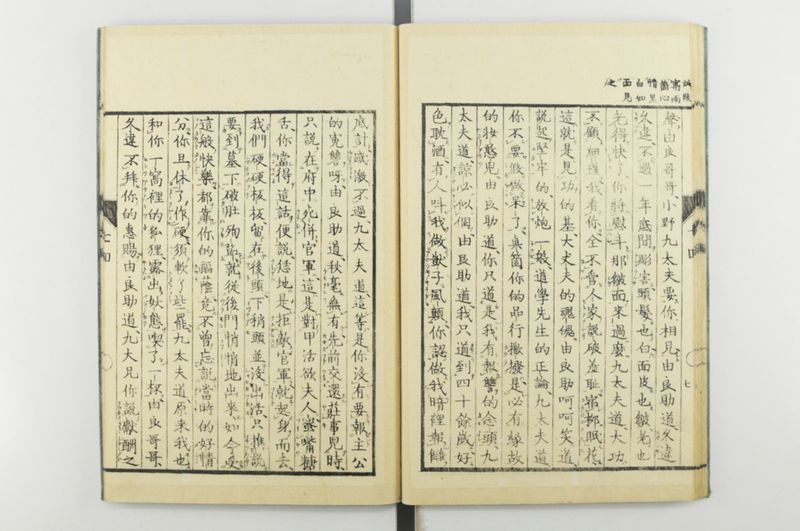 聲由良哥哥小野九太夫要你相見由良助道久違
久違不過一年底間彫害頭鬢也白面皮也皺老也
老得快了你將熨斗那皺面來過麼九太夫道大功
不顧細瑾我看你全不管人家說破羞耻宿娜眠花
這就是見功的基大丈夫的
由良助呵呵笑道
說起堅牢的放炮一般道學先生的正論九太夫道
你不要假做呆了奧箇你的品行撒撥是必有緣故
的妝憨兒由良助道你只道是我有報讐的念頭九
太夫道諒必似個由良助道我只道到四十餘歲好
色耽酒有人叫我做獃子風顛你認做我暗裡報讎
底計感激不過九太夫道這等是你沒有要報主公
的寃讐呀由良助道秋毫無有先前交還莊事兒時
只說在府中死併官軍這是對甲活欲夫人蜜嘴糖
舌你當得這話便說恁地是拒敵官軍就起身而去
我們硬硬板板留在後頭下稍頭並沒出活只推說
要到墓下破肚殉節就從後門悄悄地出來如今受
這般快樂都靠你的福蔭竟不曾忘說當時的好情
分你且休了作硬須軟了些罷九太夫道原來我也
和你一窩裡的狐狸露出妖態喫了一杯由良哥哥
久違不拜你的惠賜由良助道九大兄你說獻酬之
七